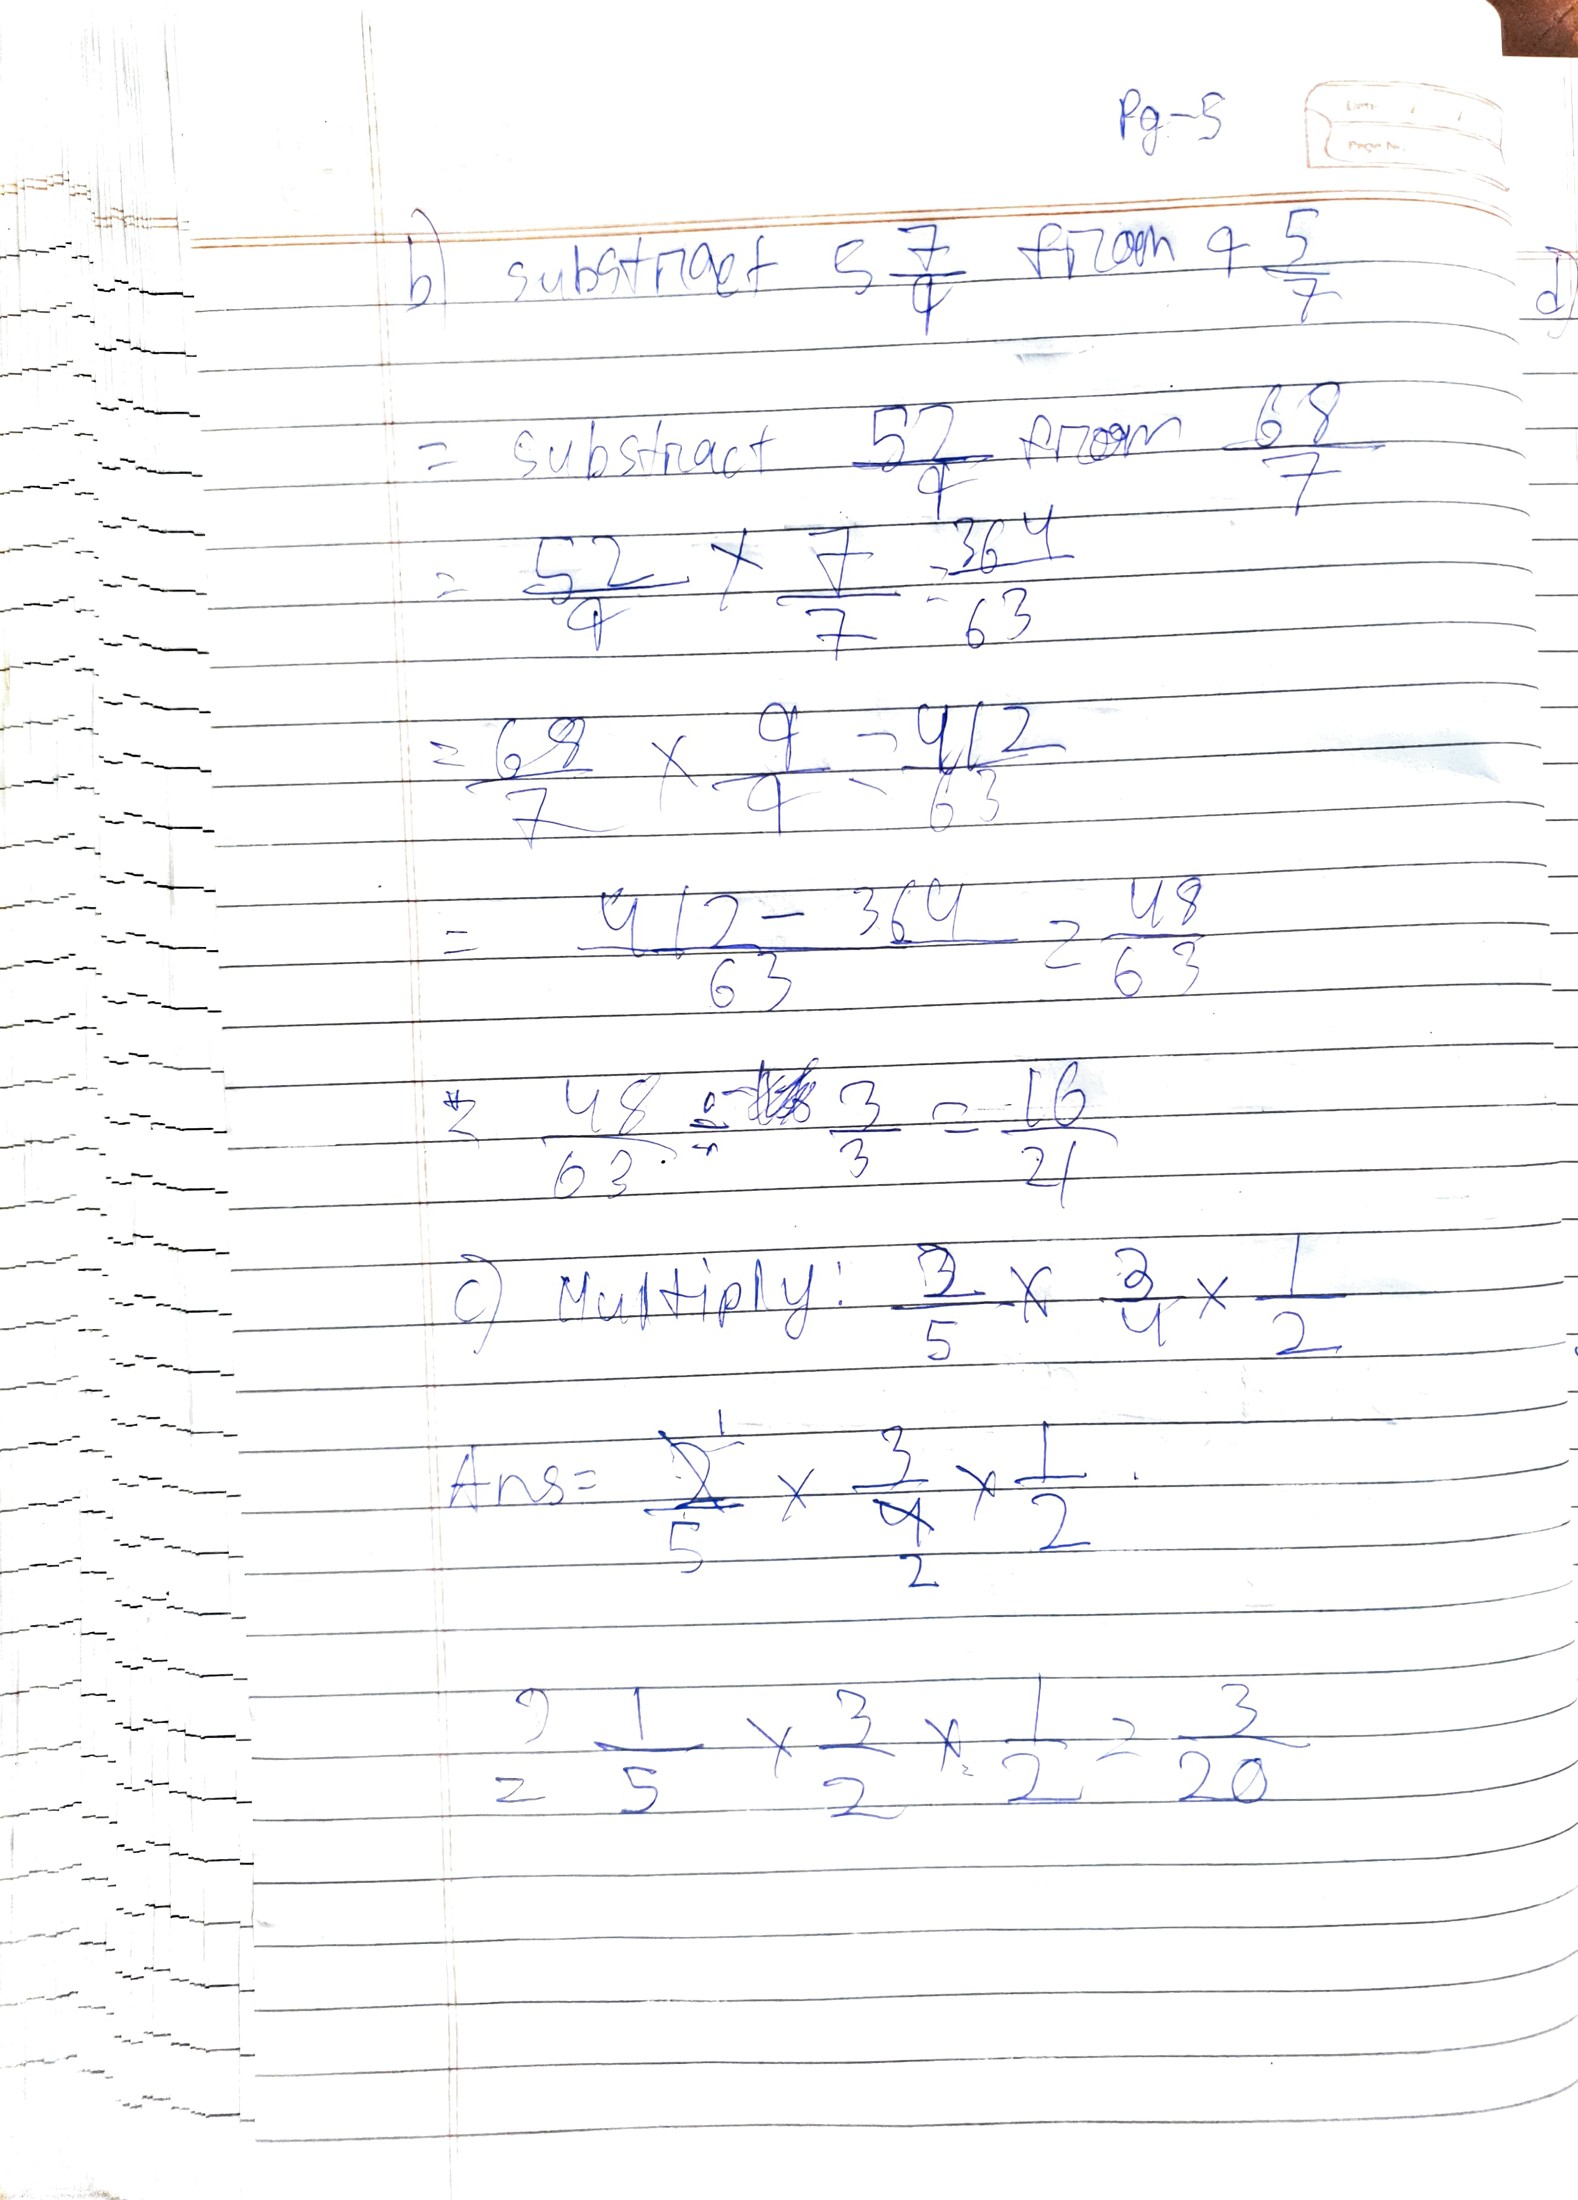 Pg-5
Date / /
Page No.
b) substract 5 7/9 from 9 5/7
d)
= substract 52/9 from 68/7
= 52/9 × 7/7 = 364/63
= 68/7 × 9/9 = 412/63
= 412 - 364/63 = 48/63
= 48/63 ÷ 3/3 = 16/21
c) Multiply: 2/5 × 3/4 × 1/2
Ans = 2/5 1 × 3/4 2 × 1/2
= 1/5 × 3/2 × 1/2 = 3/20